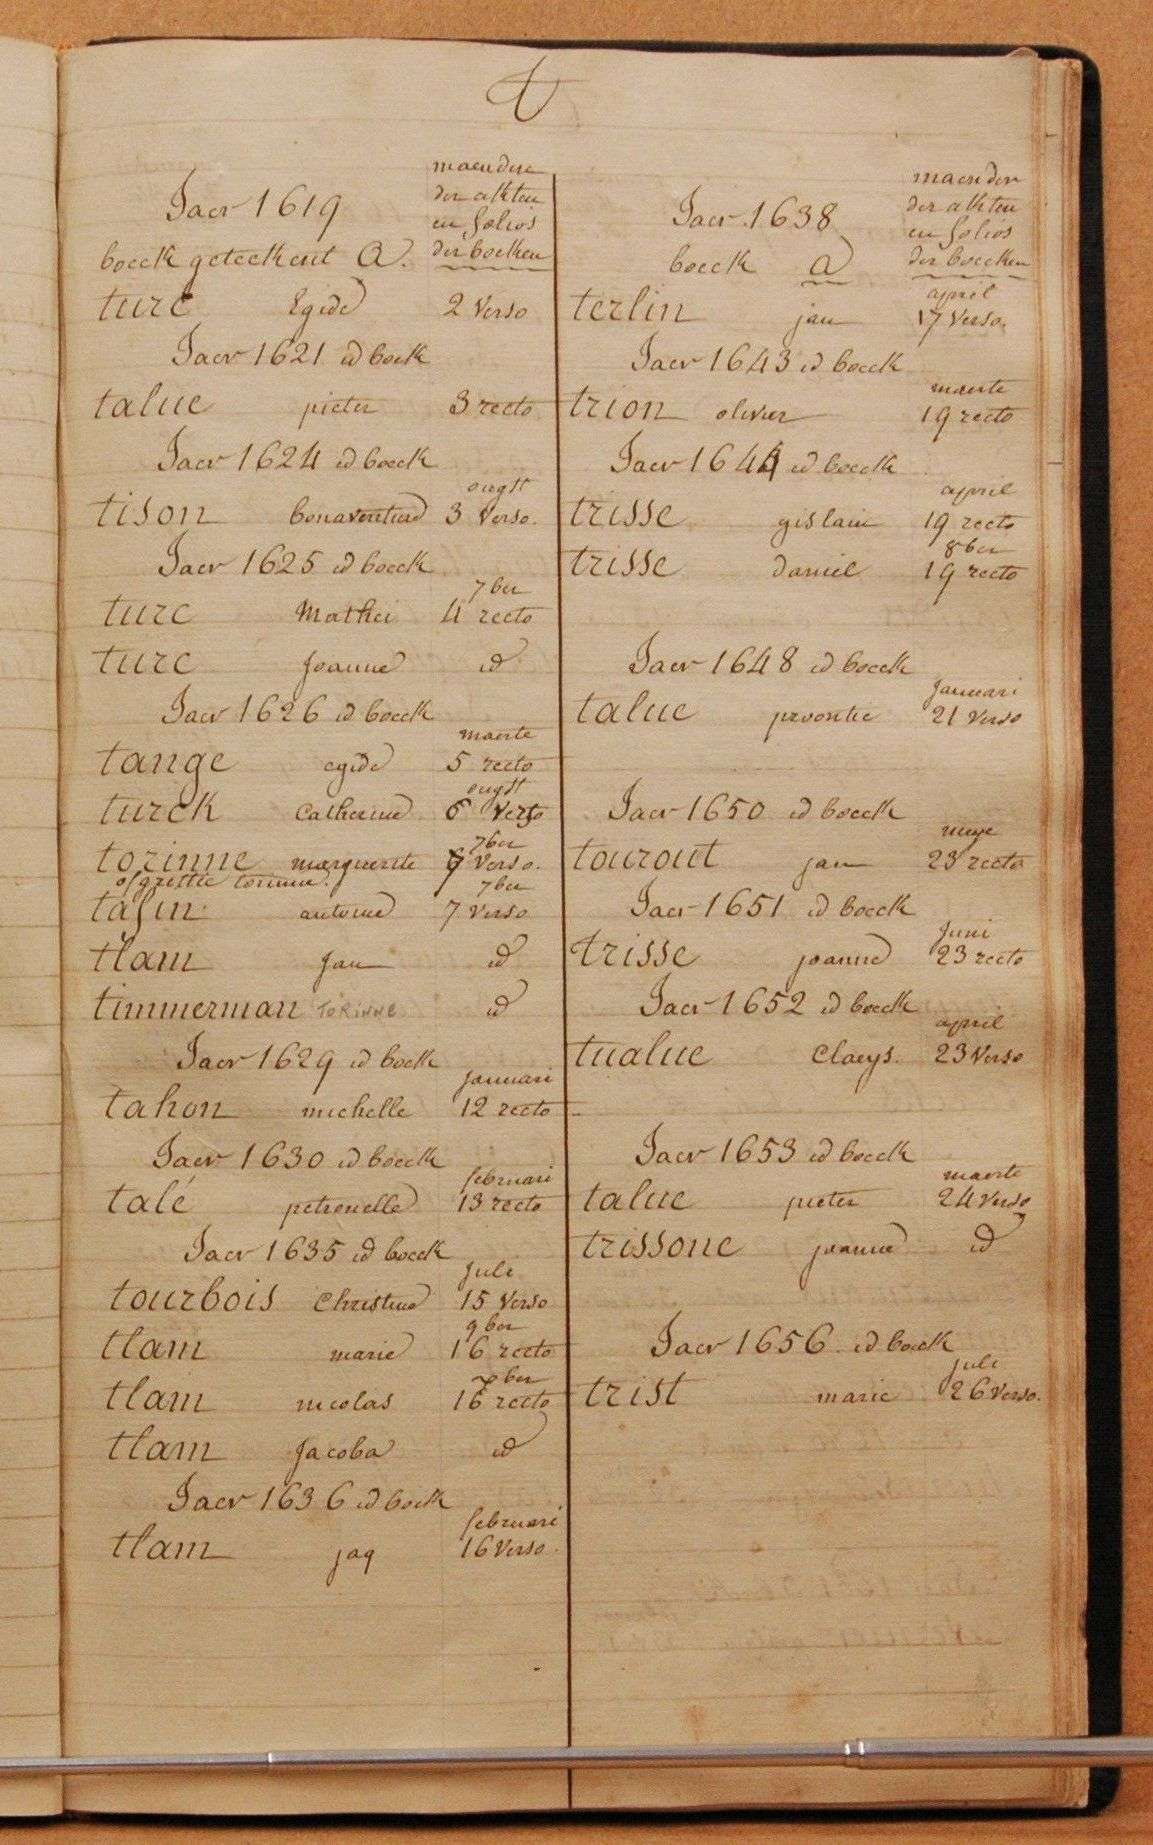 T
Jaer 1619
maenden
der akten
en folios
der boeken
boeck geteekent A.
turc Egide 2 Verso
Jaer 1621 id boeck
talue pieter 3 recto
Jaer 1624 id boeck
ougst
tison bonaventure 3 Verso.
Jaer 1625 id boeck
7ber
turc Mathei 4 recto
turc Joanne id
Jaer 1626 id boeck
maerte
tange egide 5 recto
ougst
turck Catherine 6 Verso
7ber
torinne marguerite Verso.
ofgrettie torinne.
7ber
tafin antoine 7 Verso
tlam Jan id
timmerman TORINNE id
Jaer 1629 id boeck
januari
tahon michelle 12 recto
Jaer 1630 id boeck
februari
talé petronelle 13 recto
Jaer 1635 id boeck
Juli
tourbois Christine 15 Verso
9ber
tlam marie 16 recto
ber
tlam nicolas 16 recto
tlam Jacoba id
Jaer 1636 id boeck
februari
tlam jaq 16 Verso.
Jaer 1638
maenden
der akten
en folios
der boecken
boeck a
april
terlin jan 17 Verso.
Jaer 1643 id boeck
maerte
trion olivier 19 recto
Jaer 1644 id boeck
april
trisse gislain 19 recto
8ber
trisse Daniel 19 recto
Jaer 1648 id boeck
Januari
talue 21 Verso
Jaer 1650 id boeck
meye
tourout jan 23 recto
Jaer 1651 id boeck
Juni
trisse joanne 23 recto
Jaer 1652 id boeck
april
tualue Claeys. 23 Verso
Jaer 1653 id boeck
maerte
talue pieter 24 Verso
trissone joanne id
Jaer 1656 id boeck
juli
trist marie 26 Verso.